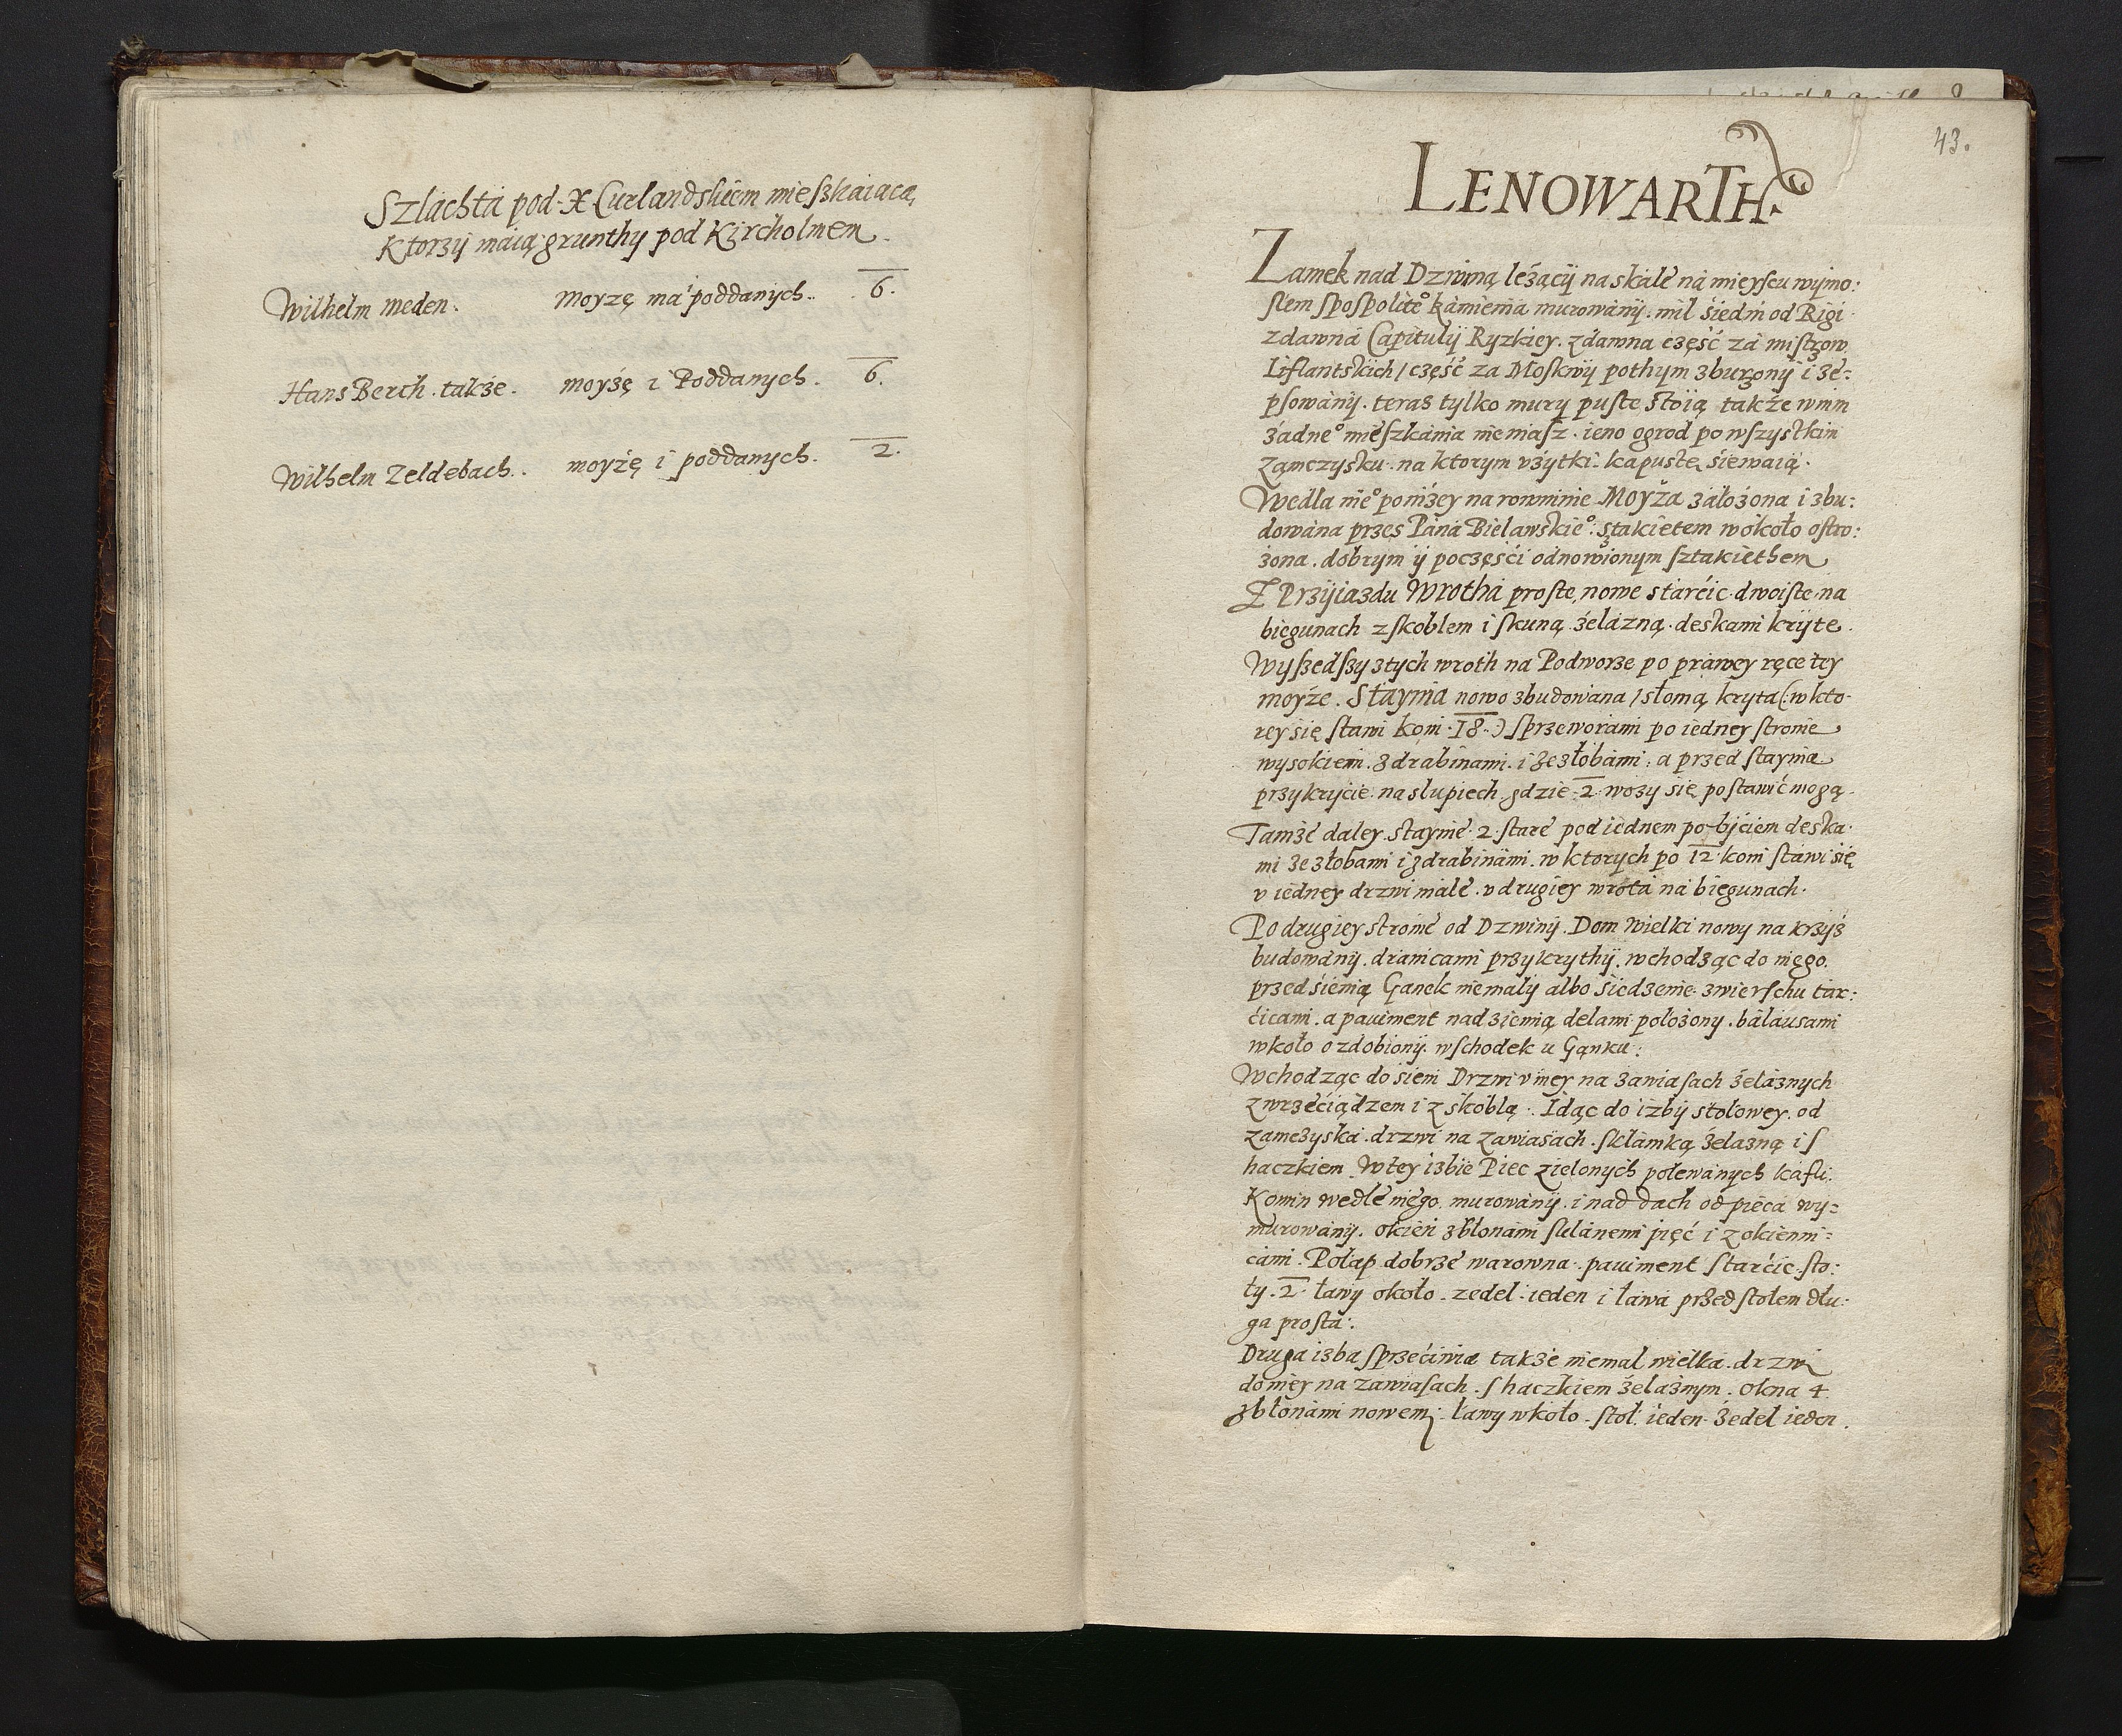 Szlachta pod X Curlandskiem mieszkaiaca,
Ktorzÿ maią grunthy pod Kircholmem
Wilhelm Meden. Moyzę ma poddanych. 6.
Hans Berch. także. moyżę i Poddanych. 6.
Wilhelm Zeldebach. moyżę i poddanych. 2.
43.
LENOWARTH.
Zamek nad Dzwiną leżącÿ na skale na mieyscu wÿnio:
słem spospolite° kamienia murowanÿ. mil siedm od Rigi
zdawna Capitulÿ Ryzkiey. zdawna część za mistrzow
Liflantskich / część za Moskwÿ pothym zburzonÿ i ze=
psowanÿ. teras tylko mury puste stoią także w nim
żadne° mieszkania niemasz. ieno ogrod po wszystkim
zamczysku. na ktorym vżytki. kapustę siewaią.
Wedla nie° poniżey na rowninie Moyża założona i zbu:
dowana przes Pana Bielawskie°. Stakietem wokoło ostro:
żona. dobrym ÿ poczęści odnowionym sztakiethem
Z Przÿiazdu Wrotha proste, nowe s tarcic. dwoiste na
biegunach z skoblem i skuną żelazną. deskami krÿte.
Wyszedszy z tych wroth na Podworze po prawey ręce tey
moyże. Staynia nowo zbudowana / słomą kryta (: w kto-
rey się stawi koni. 18.:) s przeworami po iedney stronie
wysokiemi. z drabinami. i ze złobami: a przed staynia
przykrycie. na slupiech. gdzie 2 wozy się postawić mogą.
Tamże daley. staynie. 2. stare pod iednem po-bjciem deska.
mi ze złobami i z drabinami. w ktorych po 12 koni stawi się
v iedney drzwi małe. v drugiey wrota na biegunach.
Po drugiey stronie od Dzwinÿ. Dom Wielki nowy na krzÿż
budowanÿ. dranicami przykrythÿ. wchodząc do niego.
przed sienią Ganek niemały albo siedzenie. zwierschu tar:
cicami. a paviment nad ziemią delami położony. balausami
wkoło ozdobionÿ. wschodek u Ganku:
Wchodząc do sieni Drzwi v niey na zawiasach żelaznych
z wrzeciądzem i z skoblą. Idąc do izbÿ stołowey. od
zamczyska. drzwi na zawiasach. s klamką żelazną i s
haczkiem. W tey izbie Piec zielonych polewanych kafli.
Komin wedle niego. murowanÿ. i nad dach od pieca wy=
murowanÿ. okien z błonami sklanemi pięć i z okienni=
cami. Połap dobrze warowna. paviment s tarcic. sto:
ły. 2. ławy około. zedel. ieden i ława przed stołem dłu:
ga prosta:
Druga izba s przeciwia także niemal wielka. drzwi
do niey na zawiasach. s haczkiem żelaznym. Okna 4
z błonami nowemi. ławy wkoło. stoł. ieden. żedel ieden.